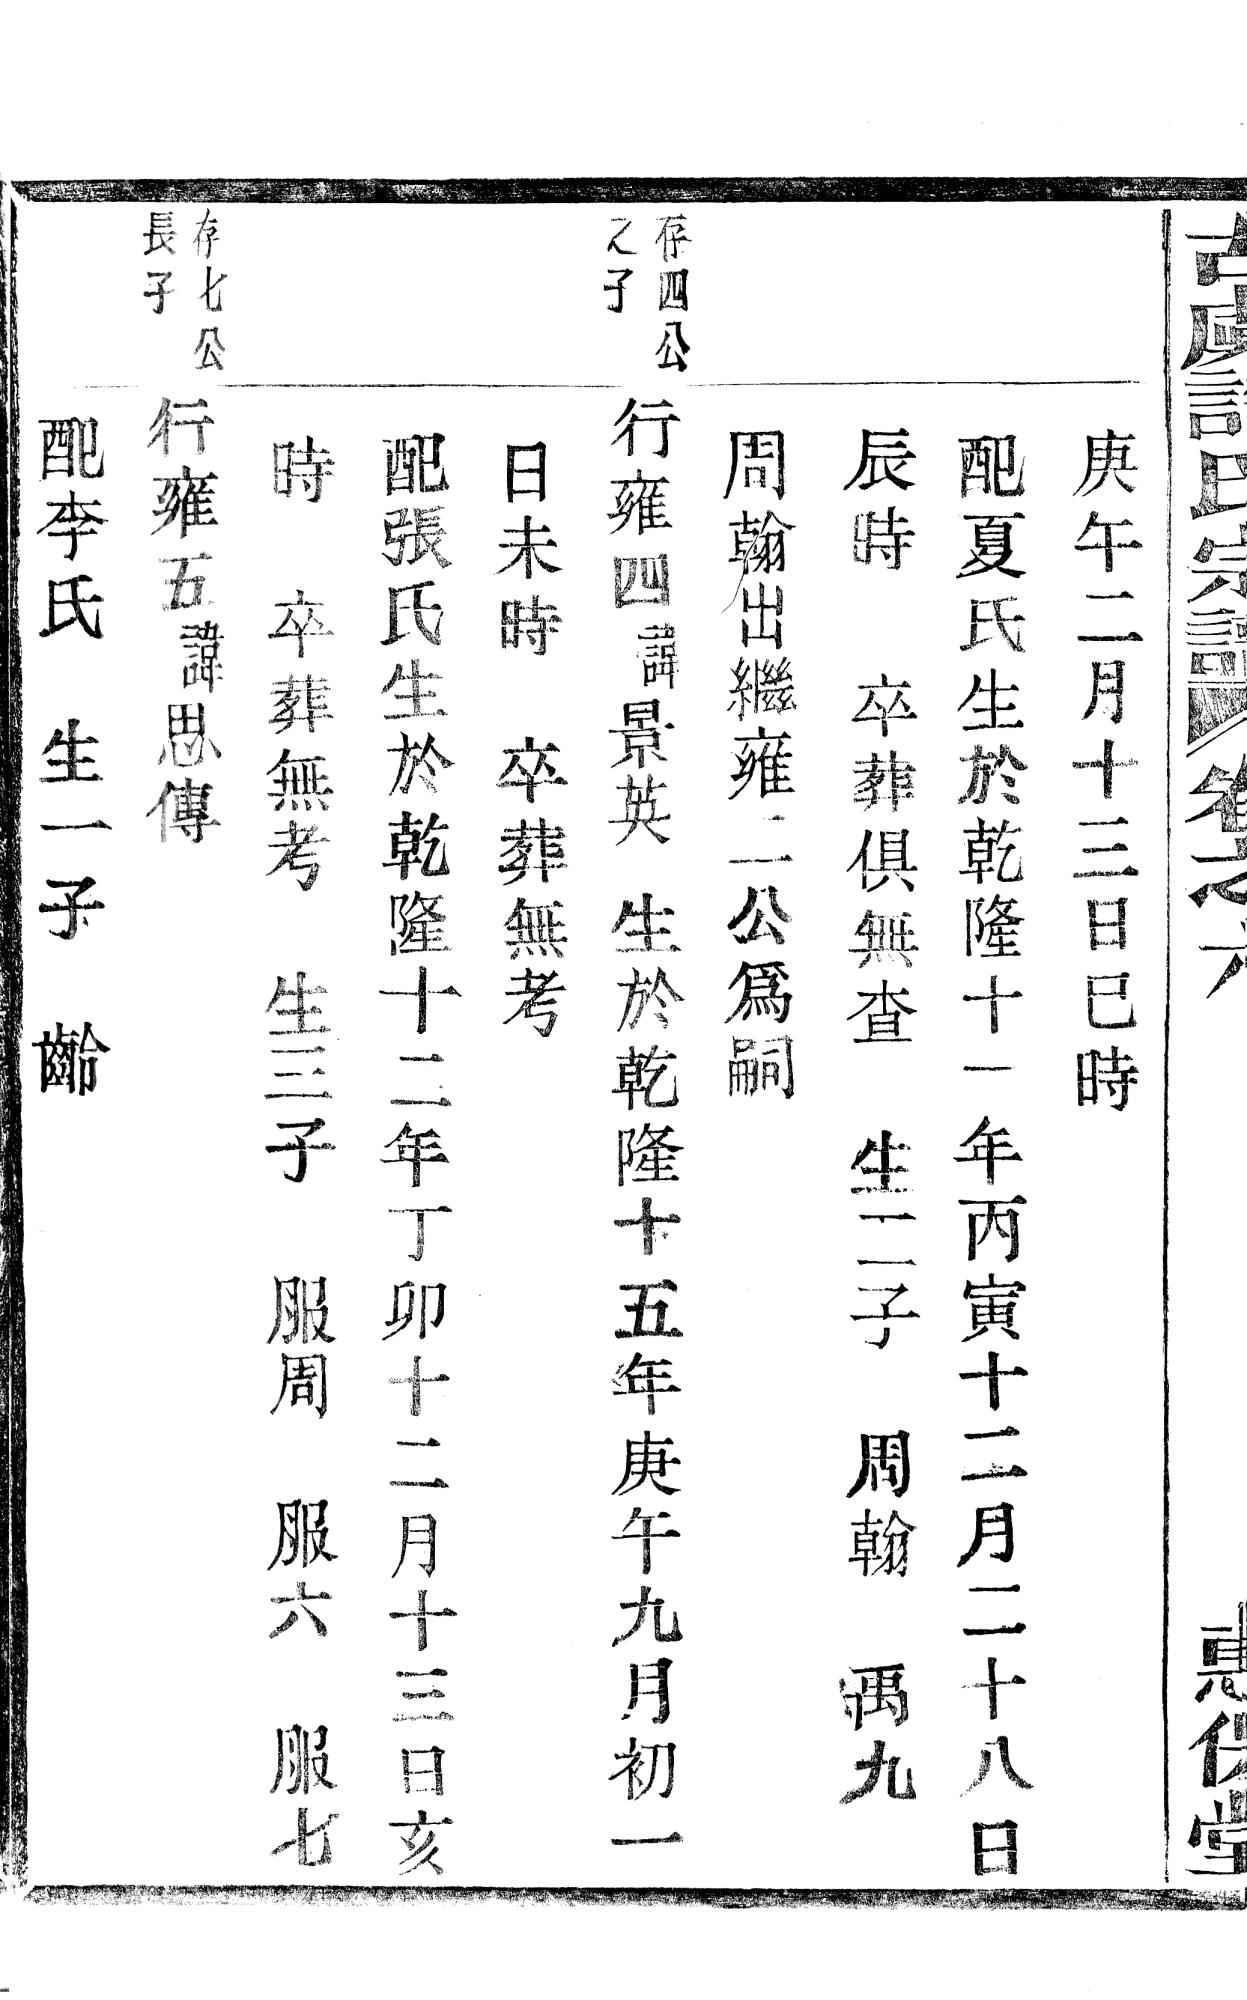 古虞許氏宗譜 卷之六 惠保堂
庚午二月十三日巳時
配夏氏生於乾隆十一年丙寅十二月二十八日
辰時 卒葬俱無查 生二子 周翰 禹九
周翰出繼雍二公爲嗣
存四公
之子
行雍四諱景英 生於乾隆十五年庚午九月初一
日未時 卒葬無考
配張氏生於乾隆十二年丁卯十二月十三日亥
時 卒葬無考 生三子 服周 服六 服七
存七公
長子
行雍五諱思傳
配李氏 生一子 齡